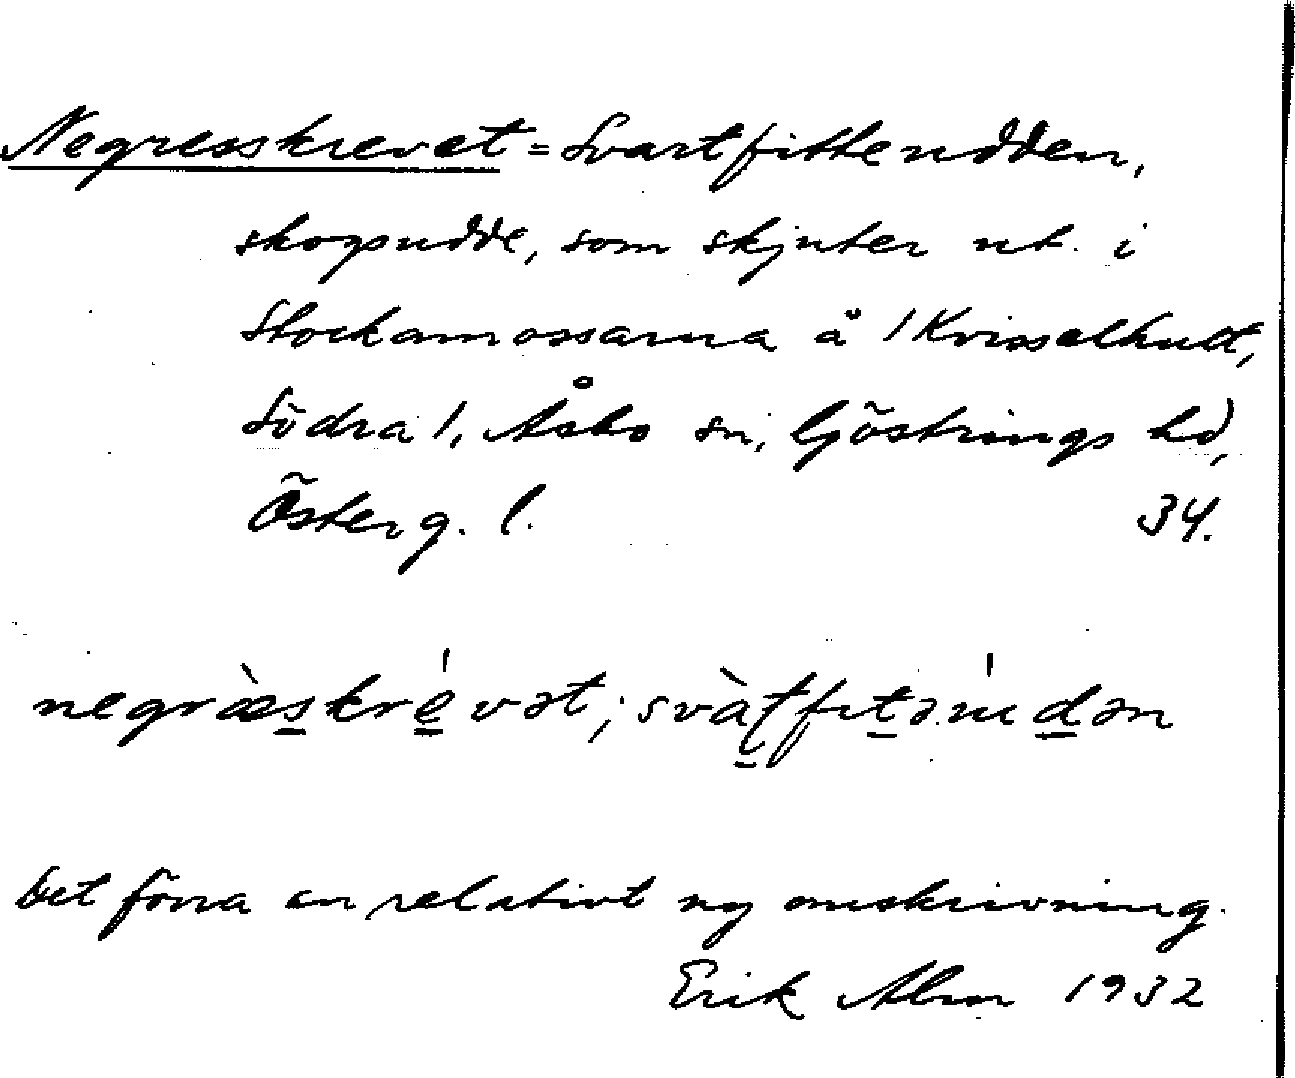 Negresskrevet = Svartfitteudden,
skogsudde, som skjuter ut i
Stockamossarna å /Kvisselhult,
Södra/, Åsbo sn, Göstrings hd,
Österg. l. 34.
negræ̀skrévət; svàtfitəúdən
Det förra en relativt ny omskrivning.
Erik Alm 1932